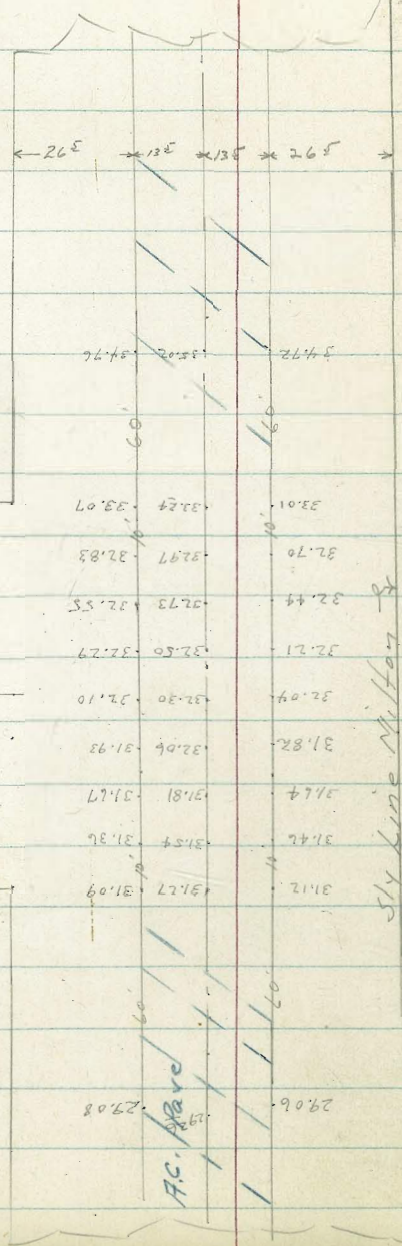 26⁵ 13⁵ 13⁵ 26⁵
34.76 35.02 34.72
60' 60'
33.07 33.24 33.01
10' 10'
32.83 32.97 32.70
32.55 32.73 32.44
32.29 32.50 32.21
32.10 32.30 32.04
31.93 32.06 31.82
31.67 31.81 31.64
31.36 31.54 31.46
10' 10
31.09 31.27 31.12
60' 60'
29.08 29.06
A.C. Pave'
Sly Line Milton